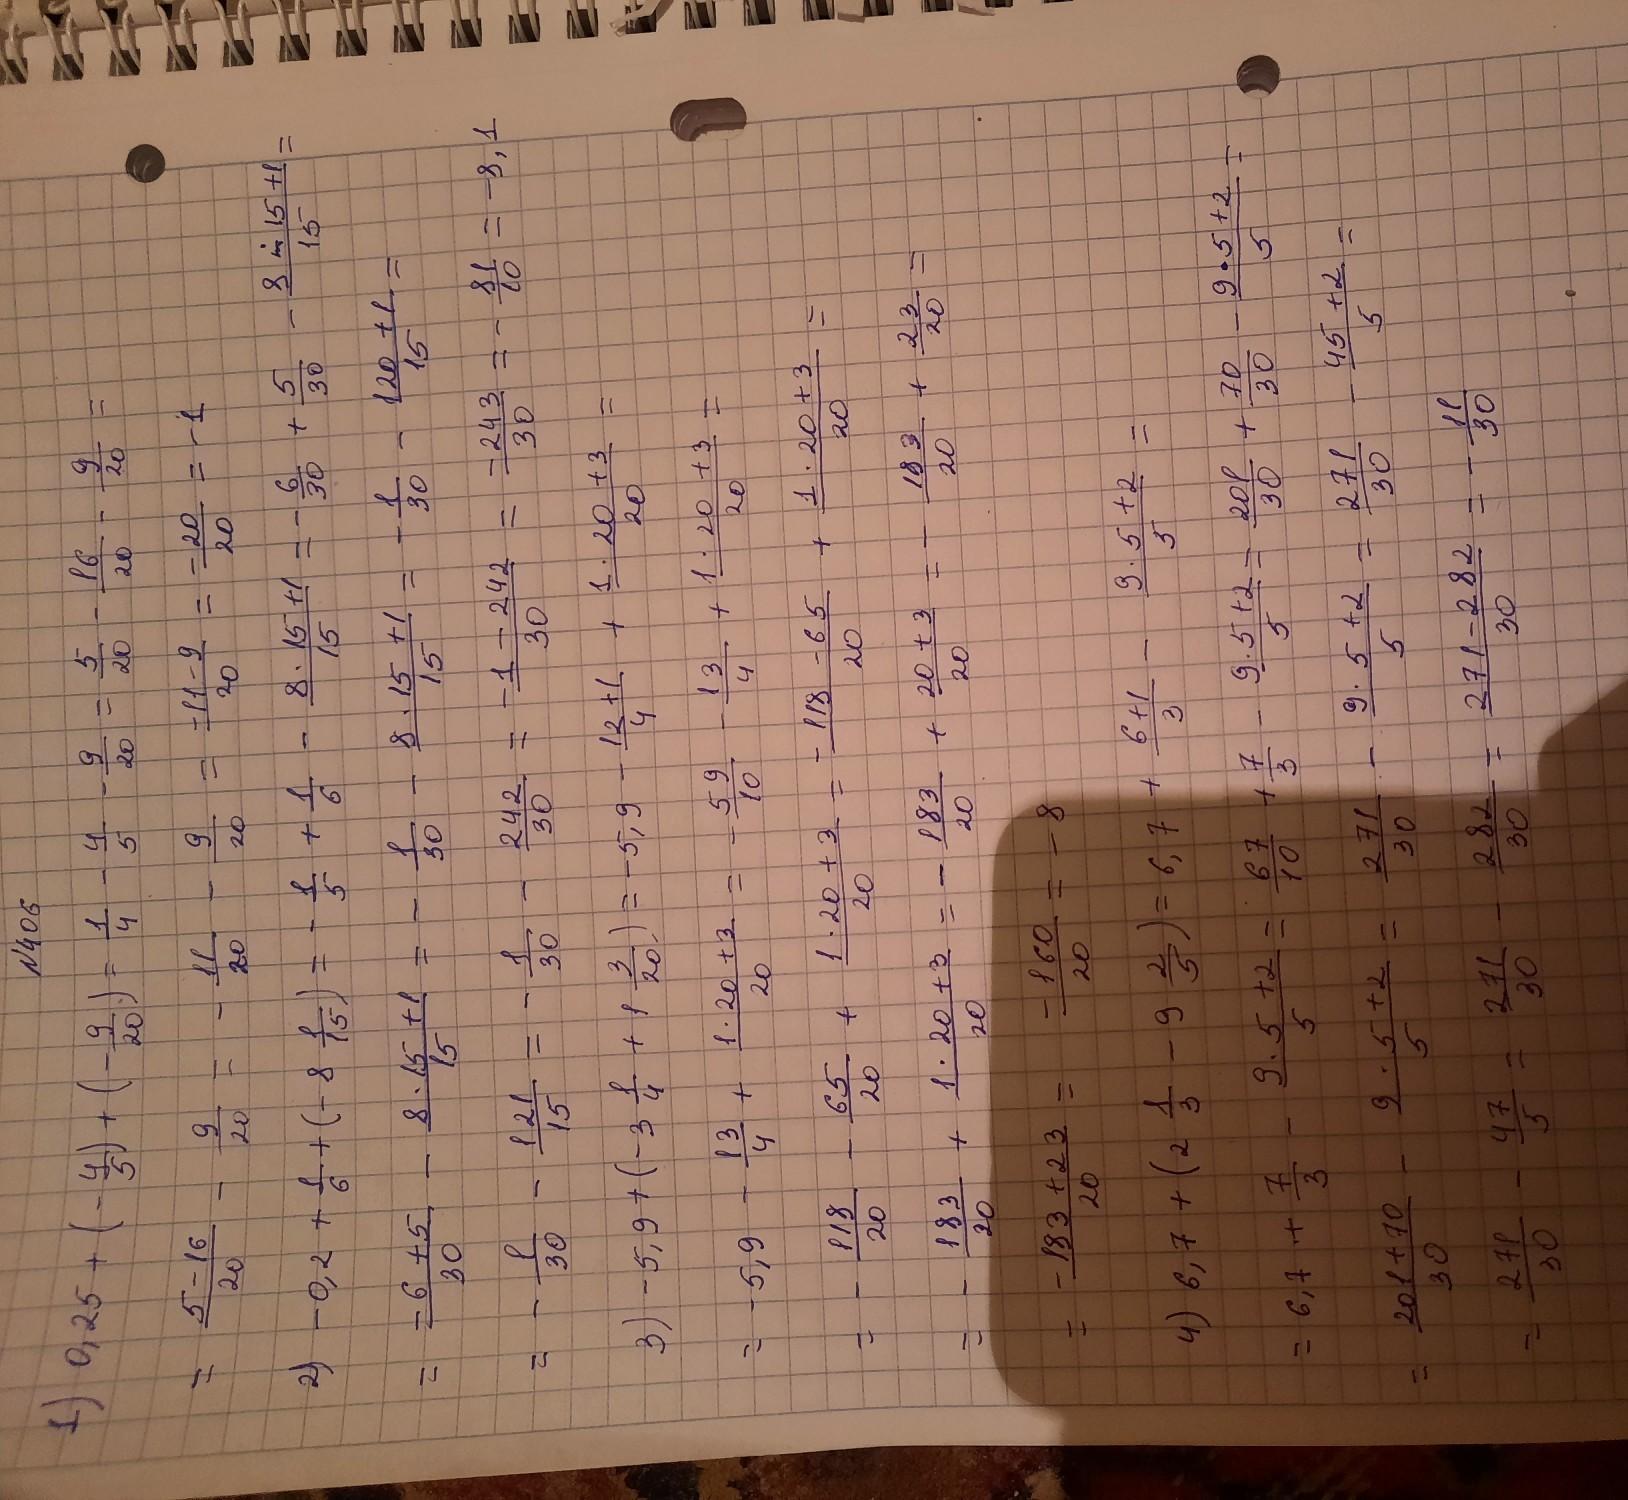 N406
1) 0,25 + (- 4/5) + (- 9/20) = 1/4 - 4/5 - 9/20 = 5/20 - 16/20 - 9/20 =
= (5-16)/20 - 9/20 = - 11/20 - 9/20 = (-11-9)/20 = -20/20 = -1
2) -0,2 + 1/6 + (-8 1/15) = - 1/5 + 1/6 - (8·15+1)/15 = - 6/30 + 5/30 - (8·15+1)/15 =
= (-6+5)/30 - (8·15+1)/15 = - 1/30 - (8·15+1)/15 = - 1/30 - (120+1)/15 =
= - 1/30 - 121/15 = - 1/30 - 242/30 = (-1-242)/30 = -243/30 = - 81/10 = -8,1
3) -5,9 + (-3 1/4) + 1 3/20) = -5,9 - (12+1)/4 + (1·20+3)/20 =
= -5,9 - 13/4 + (1·20+3)/20 = - 59/10 - 13/4 + (1·20+3)/20 =
= - 118/20 - 65/20 + (1·20+3)/20 = - (118-65)/20 + (1·20+3)/20 =
= - 183/20 + (1·20+3)/20 = - 183/20 + (20+3)/20 = - 183/20 + 23/20 =
= - (183+23)/20 = - 160/20 = - 8
4) 6,7 + (2 1/3 - 9 2/5) = 6,7 + (6+1)/3 - (9·5+2)/5 =
= 6,7 + 7/3 - (9·5+2)/5 = 67/10 + 7/3 - (9·5+2)/5 = 201/30 + 70/30 - (9·5+2)/5 =
= (201+70)/30 - (9·5+2)/5 = 271/30 - (9·5+2)/5 = 271/30 - (45+2)/5 =
= 271/30 - 47/5 = 271/30 - 282/30 = (271-282)/30 = - 11/30